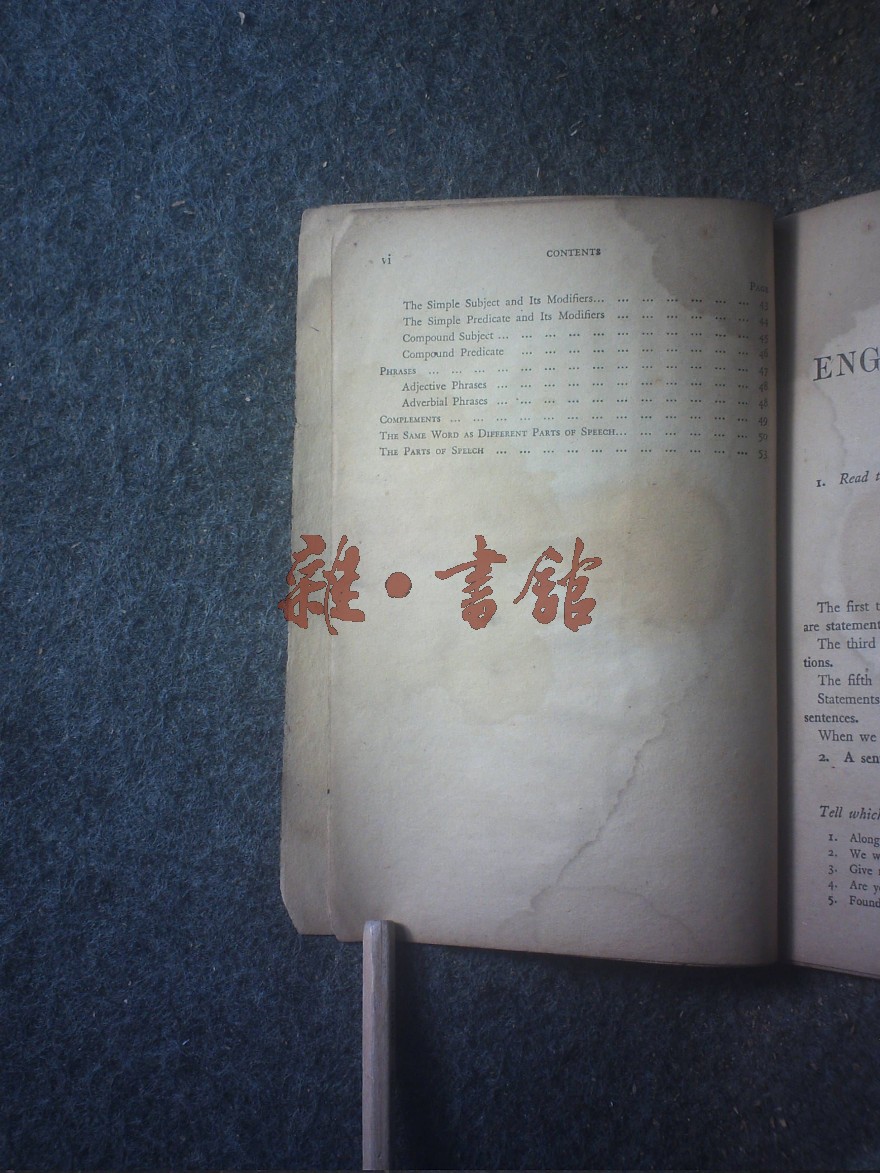 vi
CONTENTS
Page
The Simple Subject and Its Modifiers... ... ... ... ... ... ... 43
The Simple Predicate and Its Modifiers ... ... ... ... ... ... 44
Compound Subject ... ... ... ... ... ... ... ... ... ... ... 45
Compound Predicate ... ... ... ... ... ... ... ... ... ... 46
Phrases ... ... ... ... ... ... ... ... ... ... ... ... ... ... 47
Adjective Phrases ... ... ... ... ... ... ... ... ... ... ... 48
Adverbial Phrases ... ... ... ... ... ... ... ... ... ... ... 48
Complements ... ... ... ... ... ... ... ... ... ... ... ... ... 49
The Same Word as Different Parts of Speech... ... ... ... ... ... 50
The Parts of Speech ... ... ... ... ... ... ... ... ... ... ... 53
雜·書館
ENG
1. Read t
The first t
are statement
The third
tions.
The fifth
Statements
sentences.
When we
2. A sen
Tell which
1. Along
2. We w
3. Give
4. Are yo
5. Found